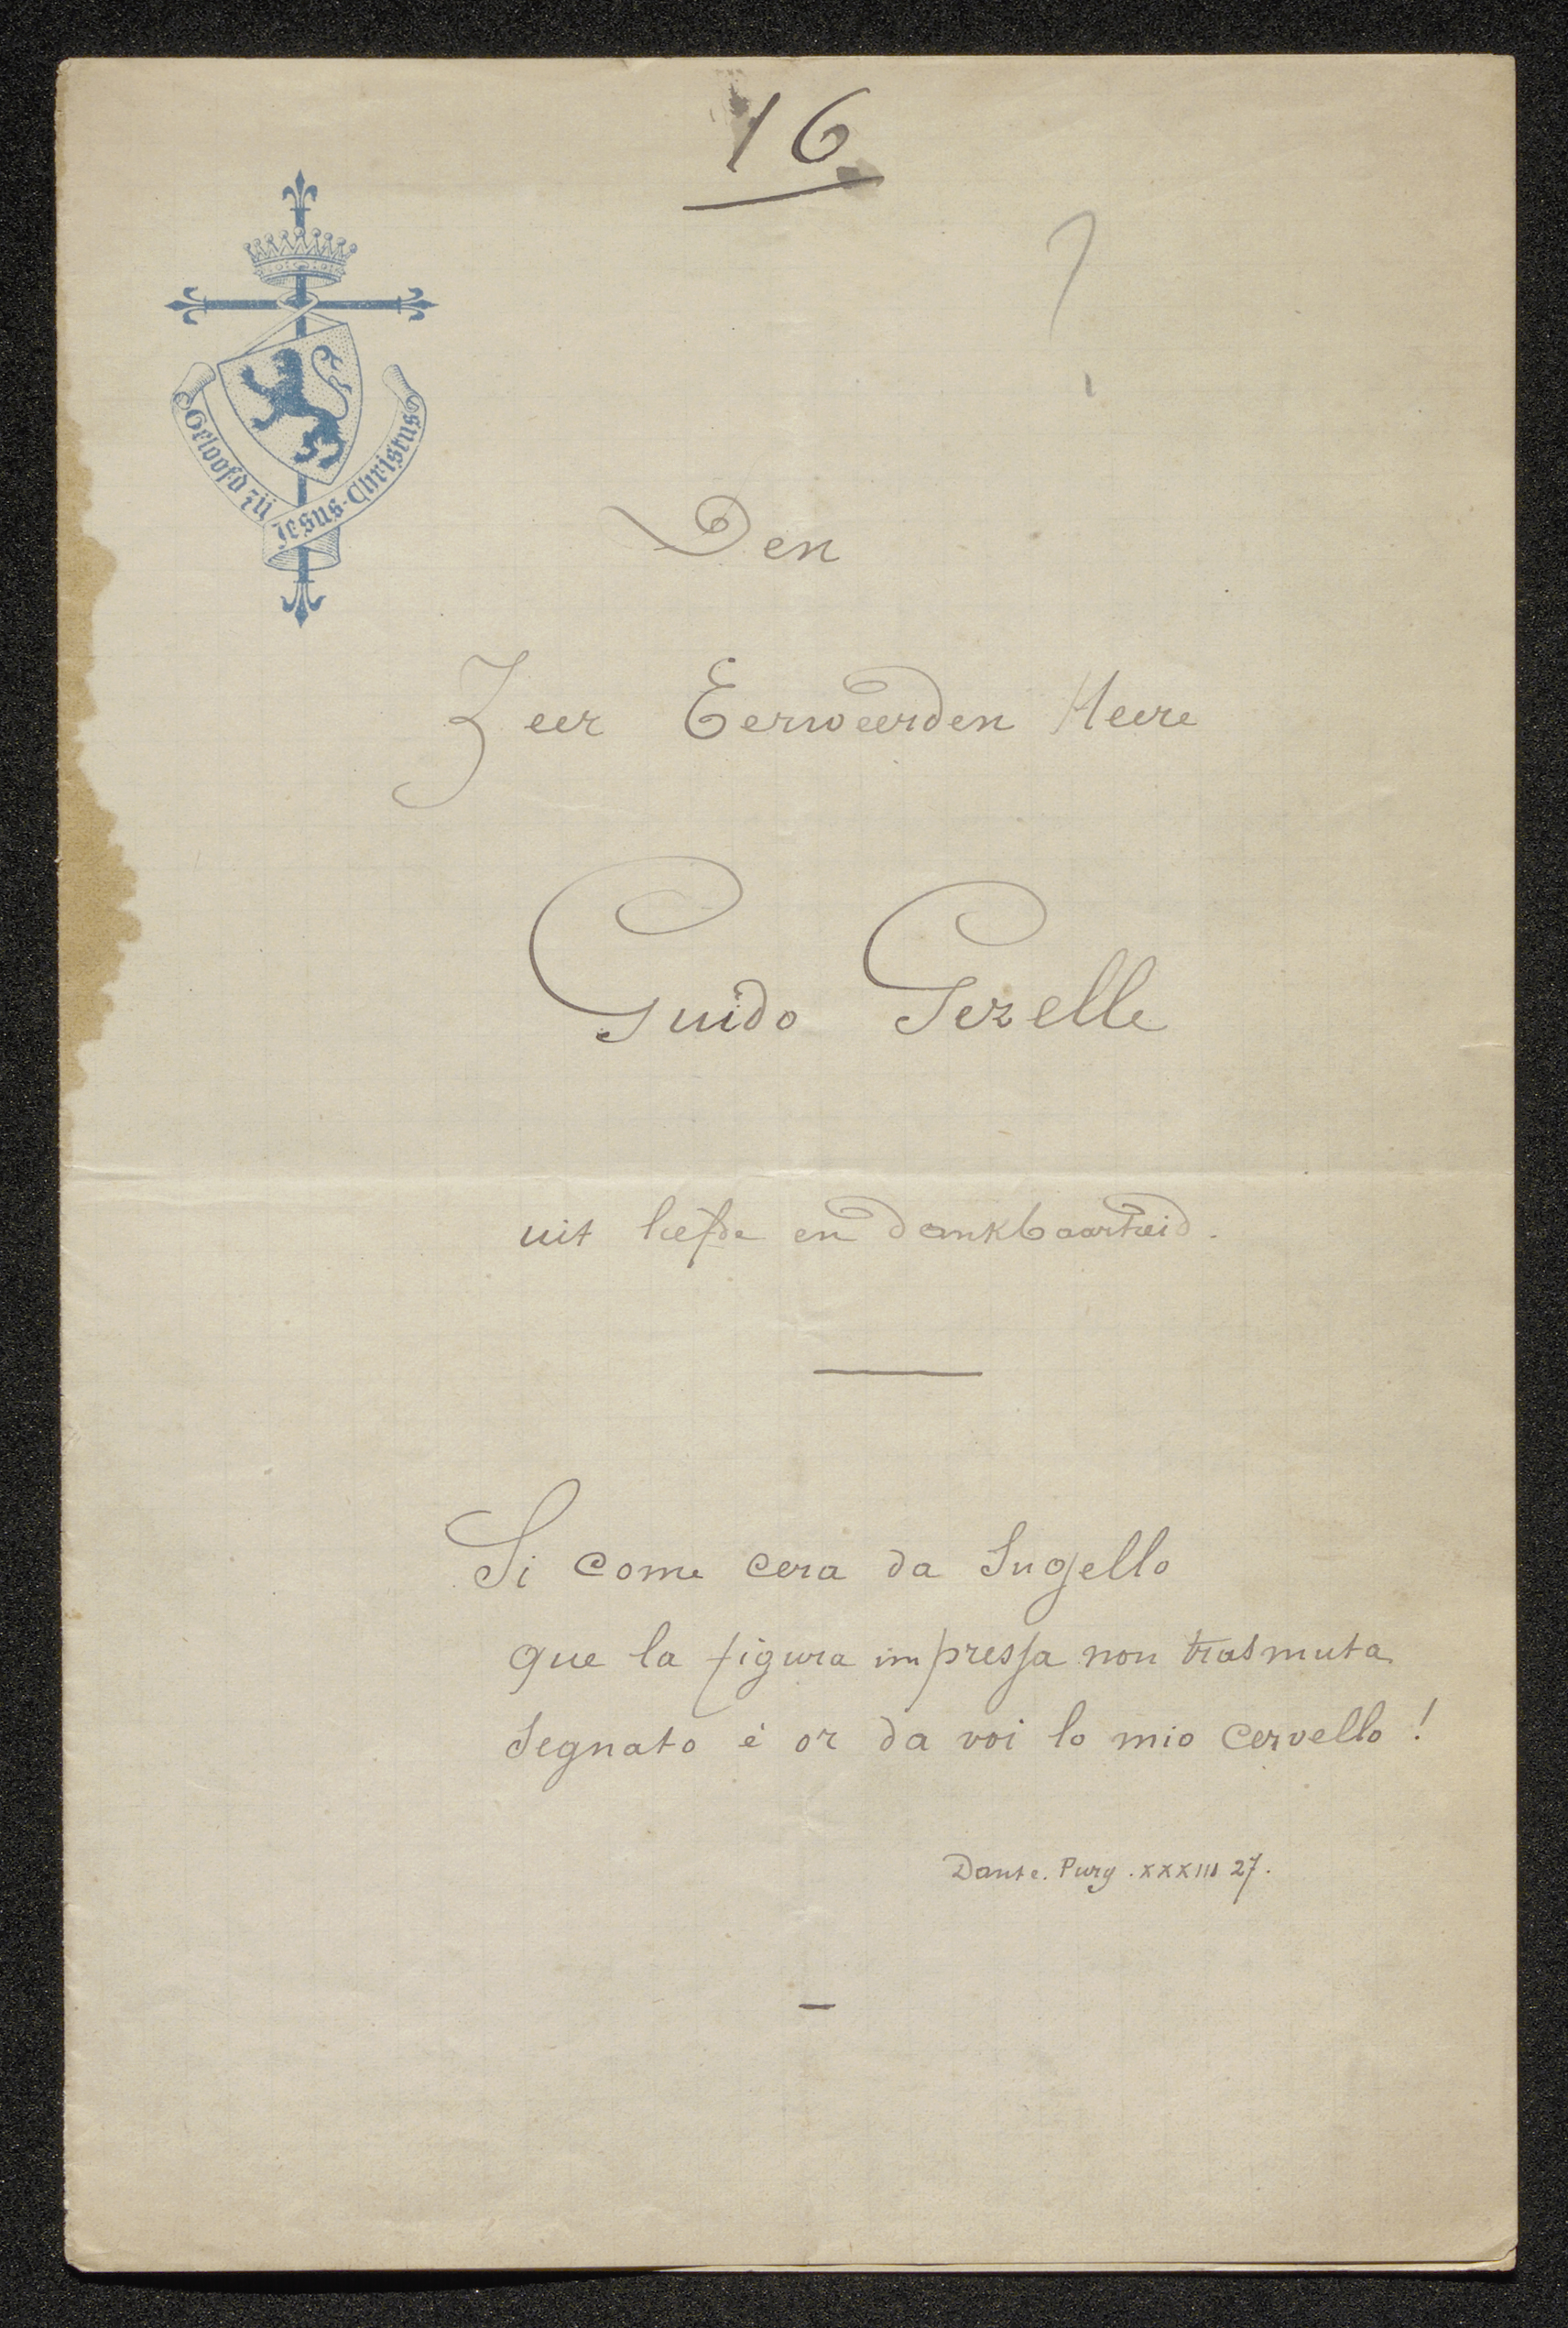 16
?
Geloofd zij Jesus-Christus
Den
Zeer Eerweerden Heere
Guido Gezelle
uit liefde en dankbaarheid.
Si come cera da Sugello
que la figura impressa non trasmuta
Segnato è or da voi lo mio cervello !
Dante. Purg. XXXIII 27.